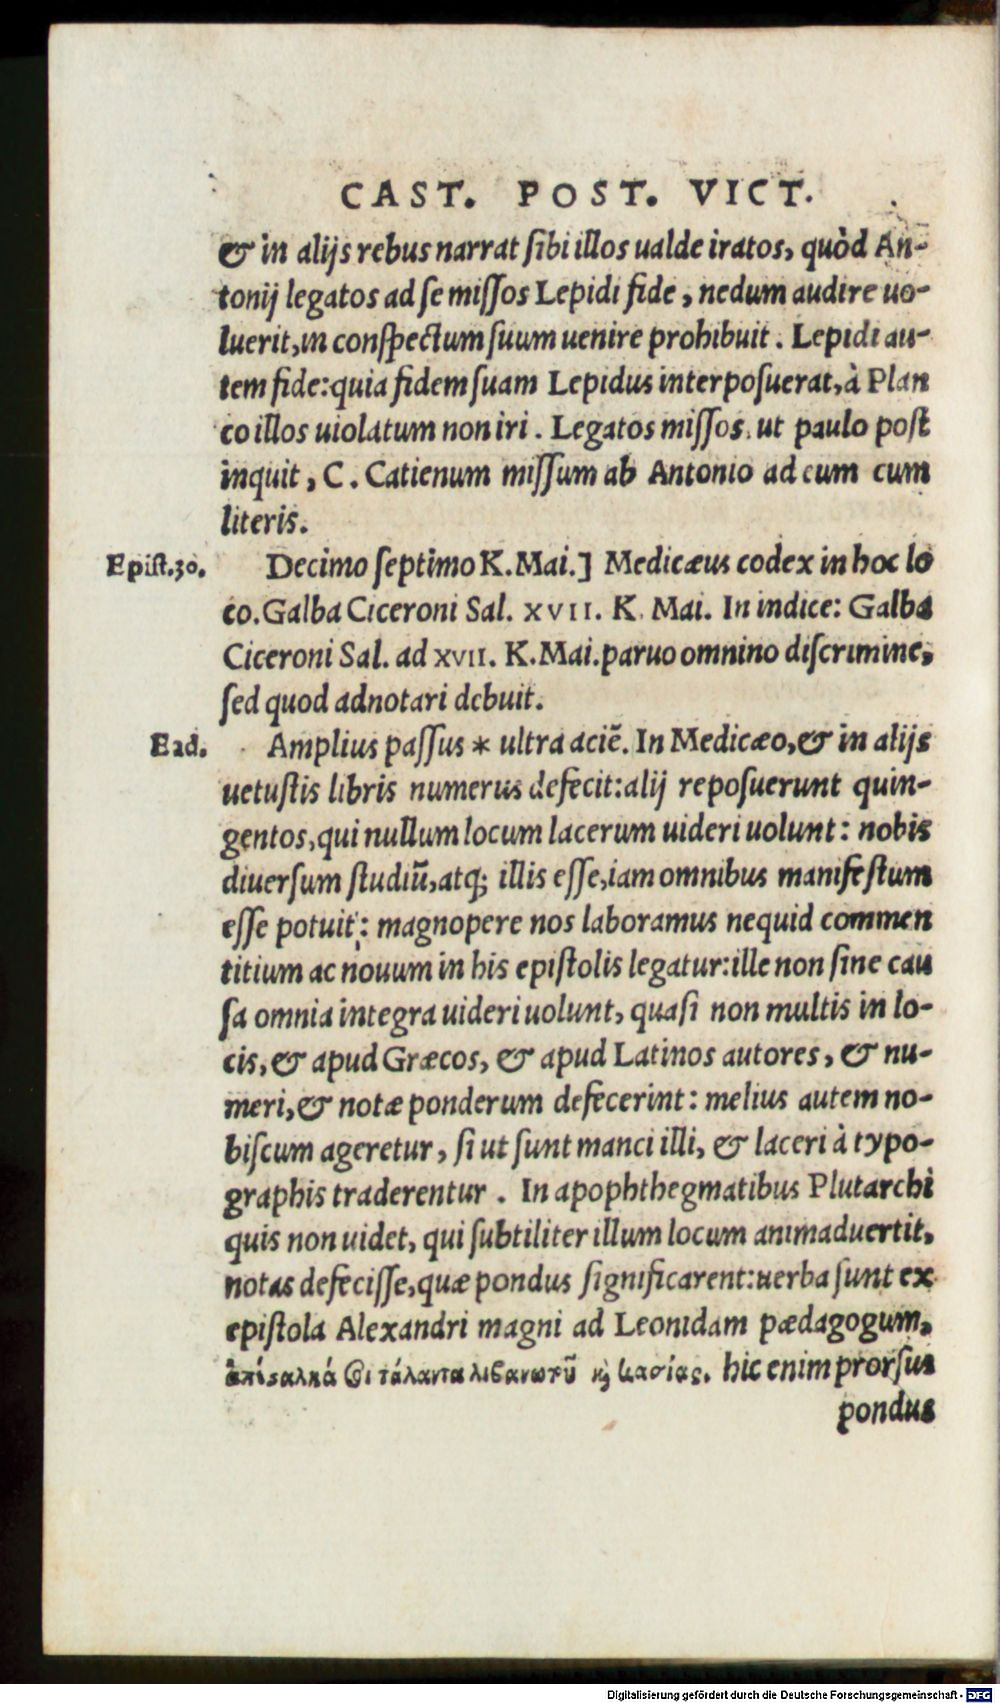 CAST. POST. VICT.
& in alijs rebus narrat sibi illos ualde iratos, quòd An-
tonij legatos ad se missos Lepidi fide, nedum audire uo-
luerit, in conspectum suum uenire prohibuit. Lepidi au-
tem fide: quia fidem suam Lepidus interposuerat, à Plan
co illos uiolatum non iri. Legatos missos, ut paulo post
inquit, C. Catienum missum ab Antonio ad eum cum
literis.
Epist.30. Decimo septimo K. Mai.] Medicæus codex in hoc lo
co. Galba Ciceroni Sal. XVII. K. Mai. In indice: Galba
Ciceroni Sal. ad XVII. K. Mai. paruo omnino discrimine,
sed quod adnotari debuit.
Ead. Amplius passus * ultra aciē. In Medicæo, & in alijs
uetustis libris numerus defecit: alij reposuerunt quin-
gentos, qui nullum locum lacerum uideri uolunt: nobis
diuersum studiū, atq; illis esse, iam omnibus manifestum
esse potuit: magnopere nos laboramus nequid commen
titium ac nouum in his epistolis legatur: ille non sine cau
sa omnia integra uideri uolunt, quasi non multis in lo-
cis, & apud Græcos, & apud Latinos autores, & nu-
meri, & notæ ponderum defecerint: melius autem no-
biscum ageretur, si ut sunt manci illi, & laceri à typo-
graphis traderentur. In apophthegmatibus Plutarchi
quis non uidet, qui subtiliter illum locum animaduertit,
notas defecisse, quæ pondus significarent: uerba sunt ex
epistola Alexandri magni ad Leonidam pædagogum,
ἀπέσαλκά σοι τάλαντα λιβανωτοῦ καὶ κασίας. hic enim prorsus
pondus
Digitalisierung gefördert durch die Deutsche Forschungsgemeinschaft - DFG